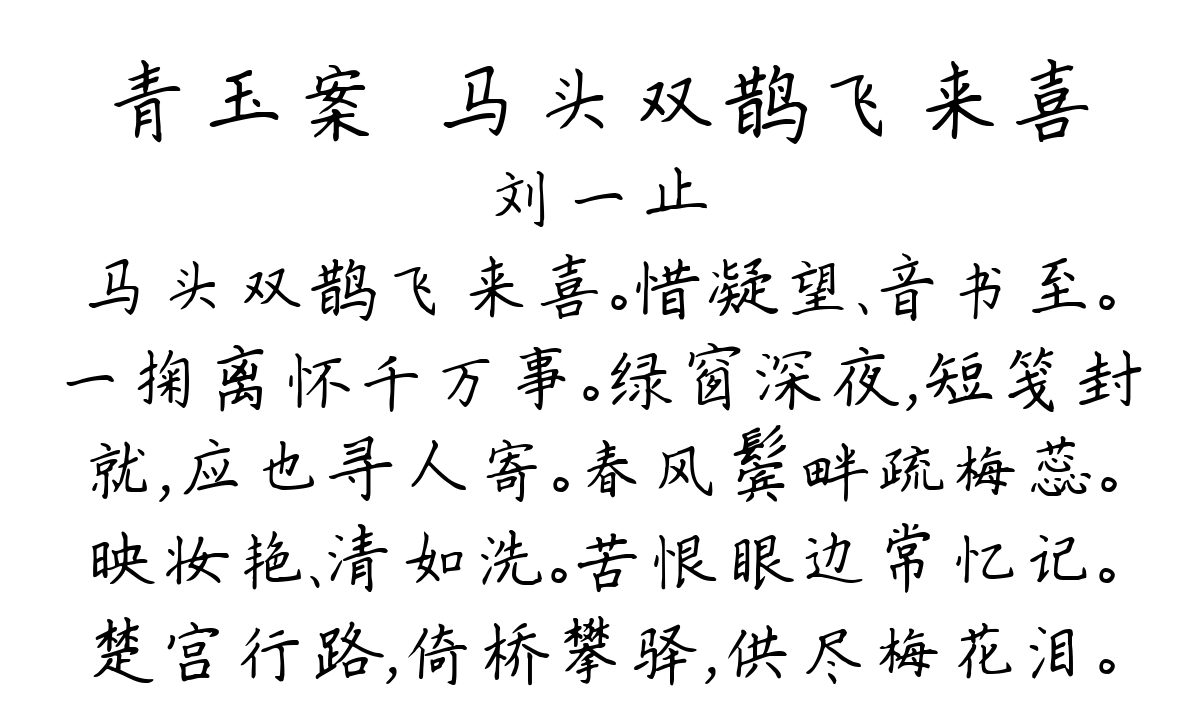 青玉案 马头双鹊飞来喜
刘一止
马头双鹊飞来喜。惜凝望、音书至。
一掬离怀千万事。绿窗深夜,短笺封
就,应也寻人寄。春风鬓畔疏梅蕊。
映妆艳、清如洗。苦恨眼边常忆记。
楚宫行路,倚桥攀驿,供尽梅花泪。